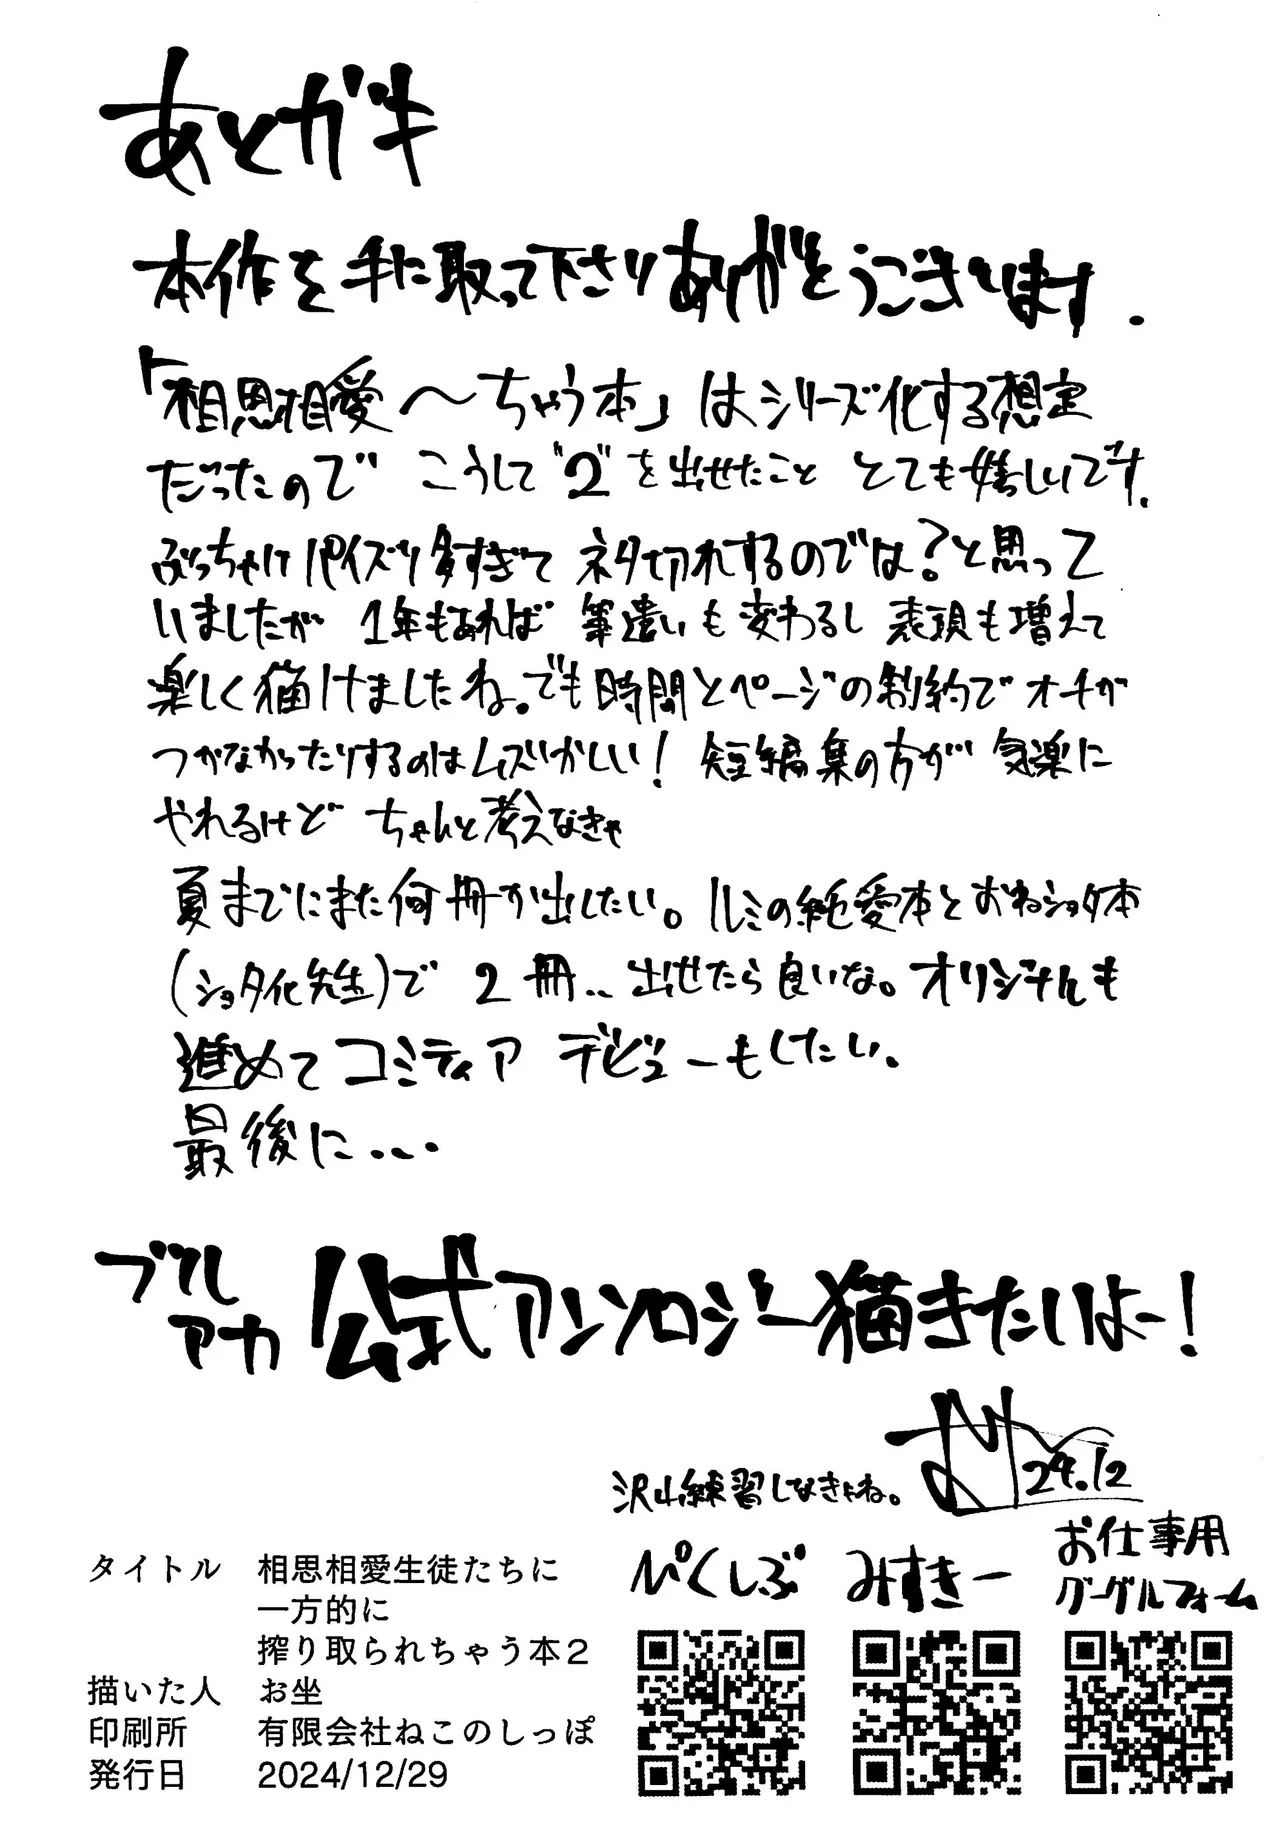 あとガキ
本作を手に取って下さりありがとうございます.
「相思相愛〜ちゃう本」はシリーズ化する想定
だったので こうして"2"を出せたこと とても嬉しいです.
ぶっちゃけパイズリ多すぎて ネタ切れするのでは?と思って
いましたが 1年もあれば 筆遣いも変わるし 表現も増えて
楽しく描けましたね。でも時間とページの制約でオチが
つかなかったりするのはムズいかしい! 短編集の方が 気楽に
やれるけど ちゃんと考えなきゃ
夏までにまた何冊か出したい。ルミの純愛本とおねショタ本
(ショタ化先生)で 2冊.. 出せたら良いな。オリジナルも
進めてコミティア デビューもしたい.
最後に....
ブルアカ 公式アンソロジー描きたいよー!
24.12
沢山練習しなきゃね。
ぴくしぶ みすきー お仕事用 グーグルフォーム
タイトル 相思相愛生徒たちに
一方的に
搾り取られちゃう本2
描いた人 お坐
印刷所 有限会社ねこのしっぽ
発行日 2024/12/29